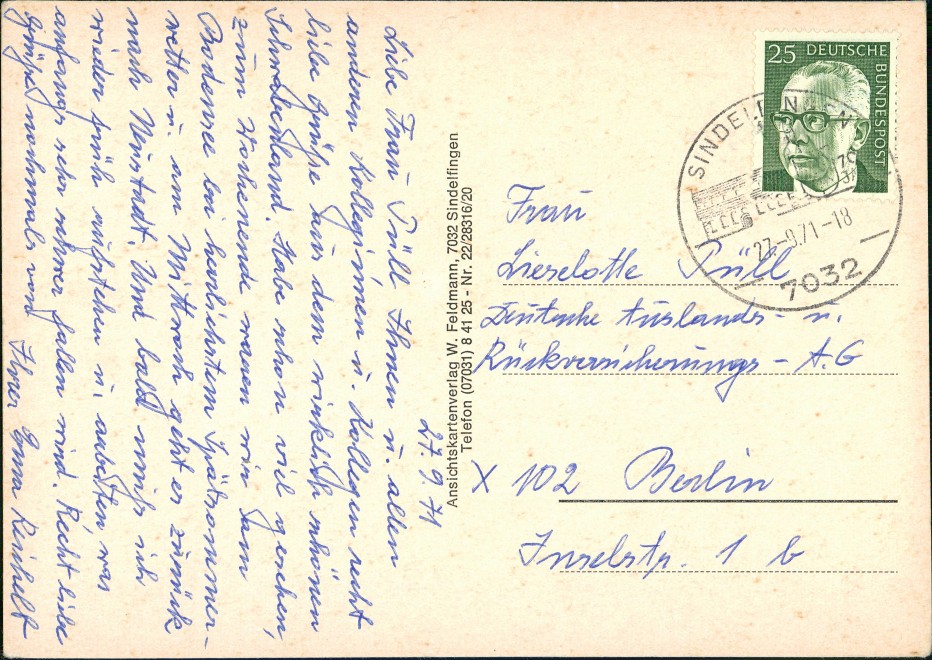 27.9.71
Liebe Frau Püll Ihnen u. allen
anderen Kolleginnen u. Kollegen recht
liebe Grüße aus dem wirklich schönen
Schwabenland. Habe schon viel gesehen,
zum Wochenende waren wir am
Bodensee bei herrlichstem Spätsommer-
wetter u. am Mittwoch geht es zurück
nach Neustadt. Und bald muß ich
wieder früh aufstehen u. arbeiten, was
anfangs sehr schwer fallen wird. Recht liebe
Grüße nochmals von Ihrer
Ansichtskartenverlag W. Feldmann, 7032 Sindelfingen
Telefon (07031) 8 41 25 - Nr. 22/28316/20
25 DEUTSCHE
BUNDESPOST
SINDELFINGEN
27.-9.71-18
7032
Frau
Lieselotte Püll
Deutsche Auslands- u.
Rückversicherungs-A.G
X 102 Berlin
Inselstr. 1 b